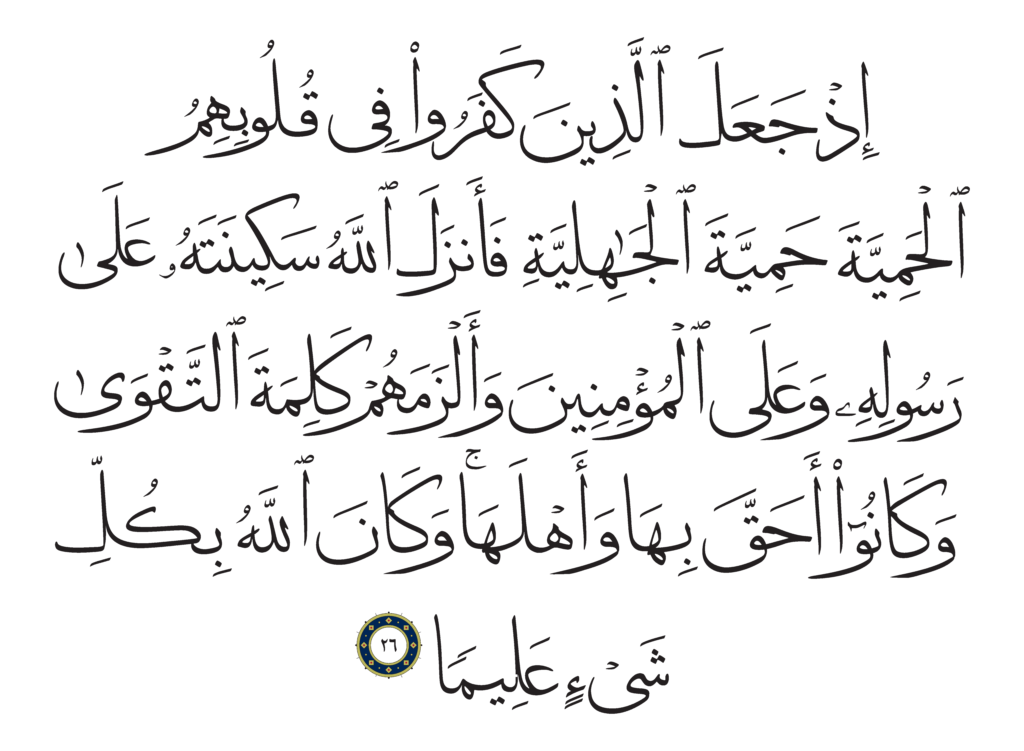 إِذۡ جَعَلَ ٱلَّذِينَ كَفَرُواْ فِي قُلُوبِهِمُ
ٱلۡحَمِيَّةَ حَمِيَّةَ ٱلۡجَٰهِلِيَّةِ فَأَنزَلَ ٱللَّهُ سَكِينَتَهُۥ عَلَىٰ
رَسُولِهِۦ وَعَلَى ٱلۡمُؤۡمِنِينَ وَأَلۡزَمَهُمۡ كَلِمَةَ ٱلتَّقۡوَىٰ
وَكَانُوٓاْ أَحَقَّ بِهَا وَأَهۡلَهَاۚ وَكَانَ ٱللَّهُ بِكُلِّ
شَيۡءٍ عَلِيمٗا ٢٦